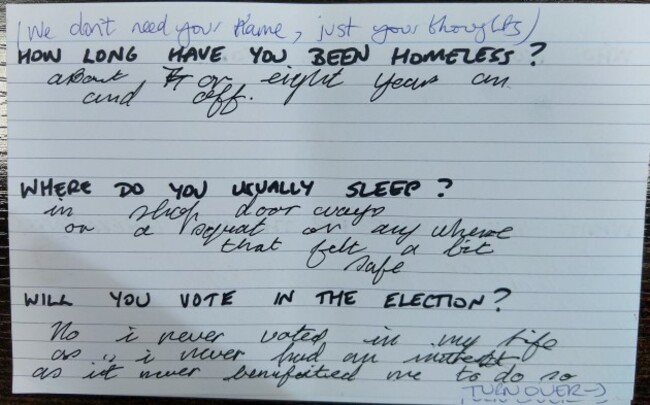 (We don't need your Name, just your thoughts)
HOW LONG HAVE YOU BEEN HOMELESS?
about 7 or eight years on
and off.
WHERE DO YOU USUALLY SLEEP?
in shop door ways
or a squat or any where
that felt a bit
safe
WILL YOU VOTE IN THE ELECTION?
No i never voted in my life
as i never had an
as it never benifeited me to do so
TURN OVER→)